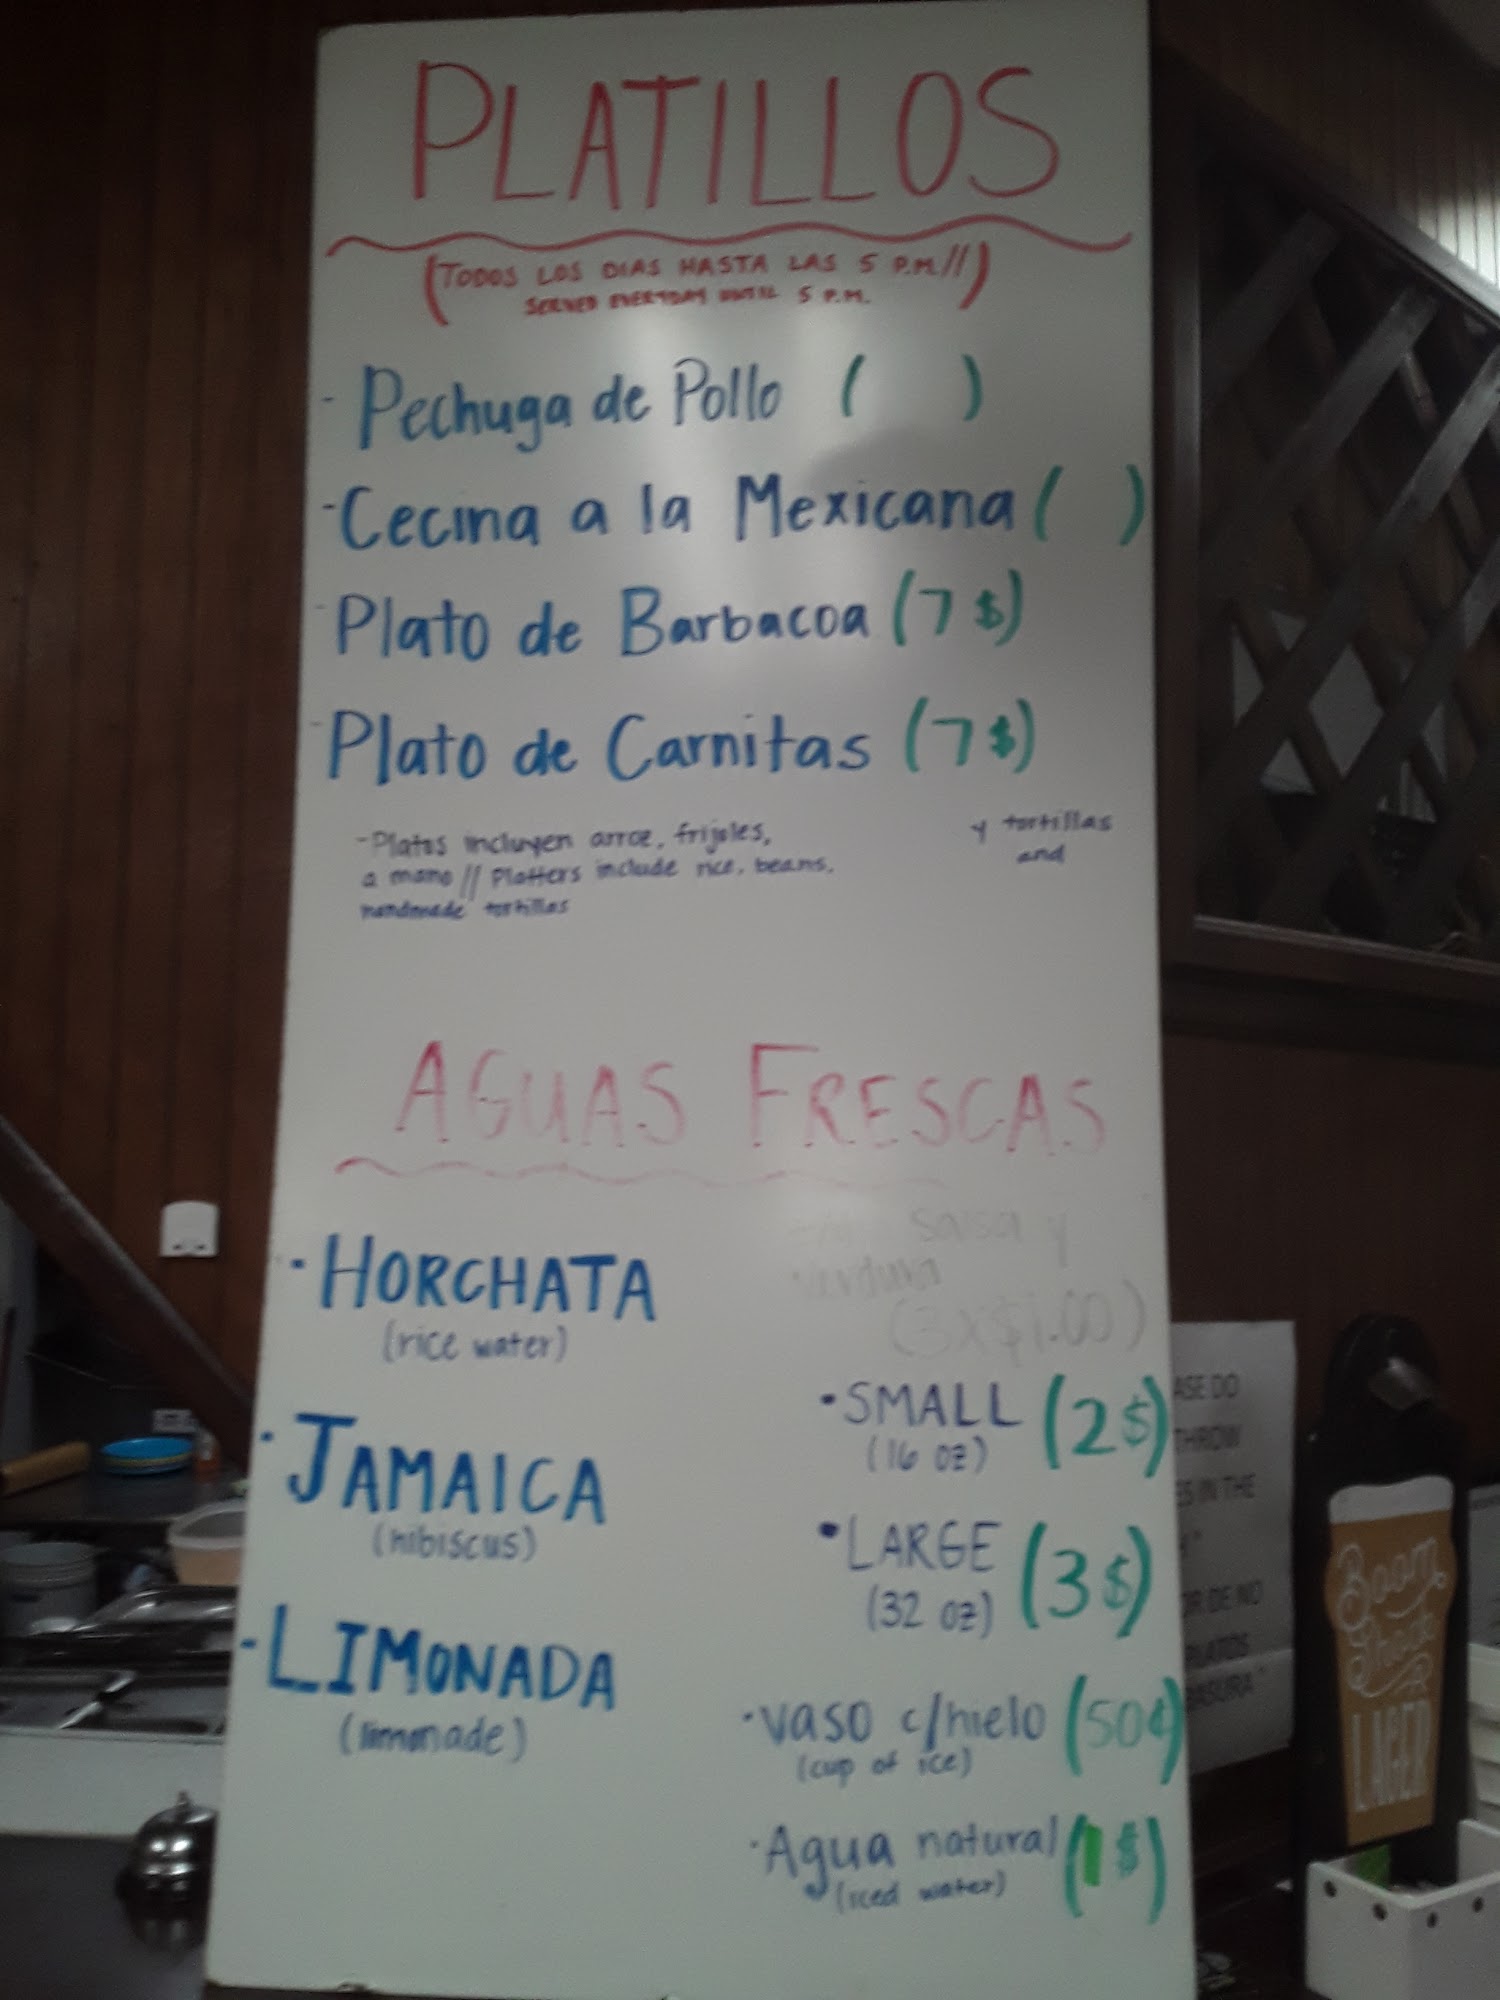 PLATILLOS
(TODOS LOS DIAS HASTA LAS 5 P.M.//)
SERVED EVERYDAY UNTIL 5 P.M.
- Pechuga de Pollo ( )
- Cecina a la Mexicana ( )
- Plato de Barbacoa (7$)
- Plato de Carnitas (7$)
- Platos incluyen arroz, frijoles, y tortillas
a mano // Platters include rice, beans, and
handmade tortillas
AGUAS FRESCAS
salsa y
verdura
(Ex $1.00)
• HORCHATA
(rice water)
• JAMAICA
(hibiscus)
- LIMONADA
(limonade)
• SMALL (2$)
(16 oz)
• LARGE (3$)
(32 oz)
• vaso c/hielo (50¢)
(cup of ice)
• Agua natural (1$)
(iced water)
ASE DO
THROW
ES IN THE
OR DE NO
PLATOS
BASURA"
Boom
Shack
LAGER